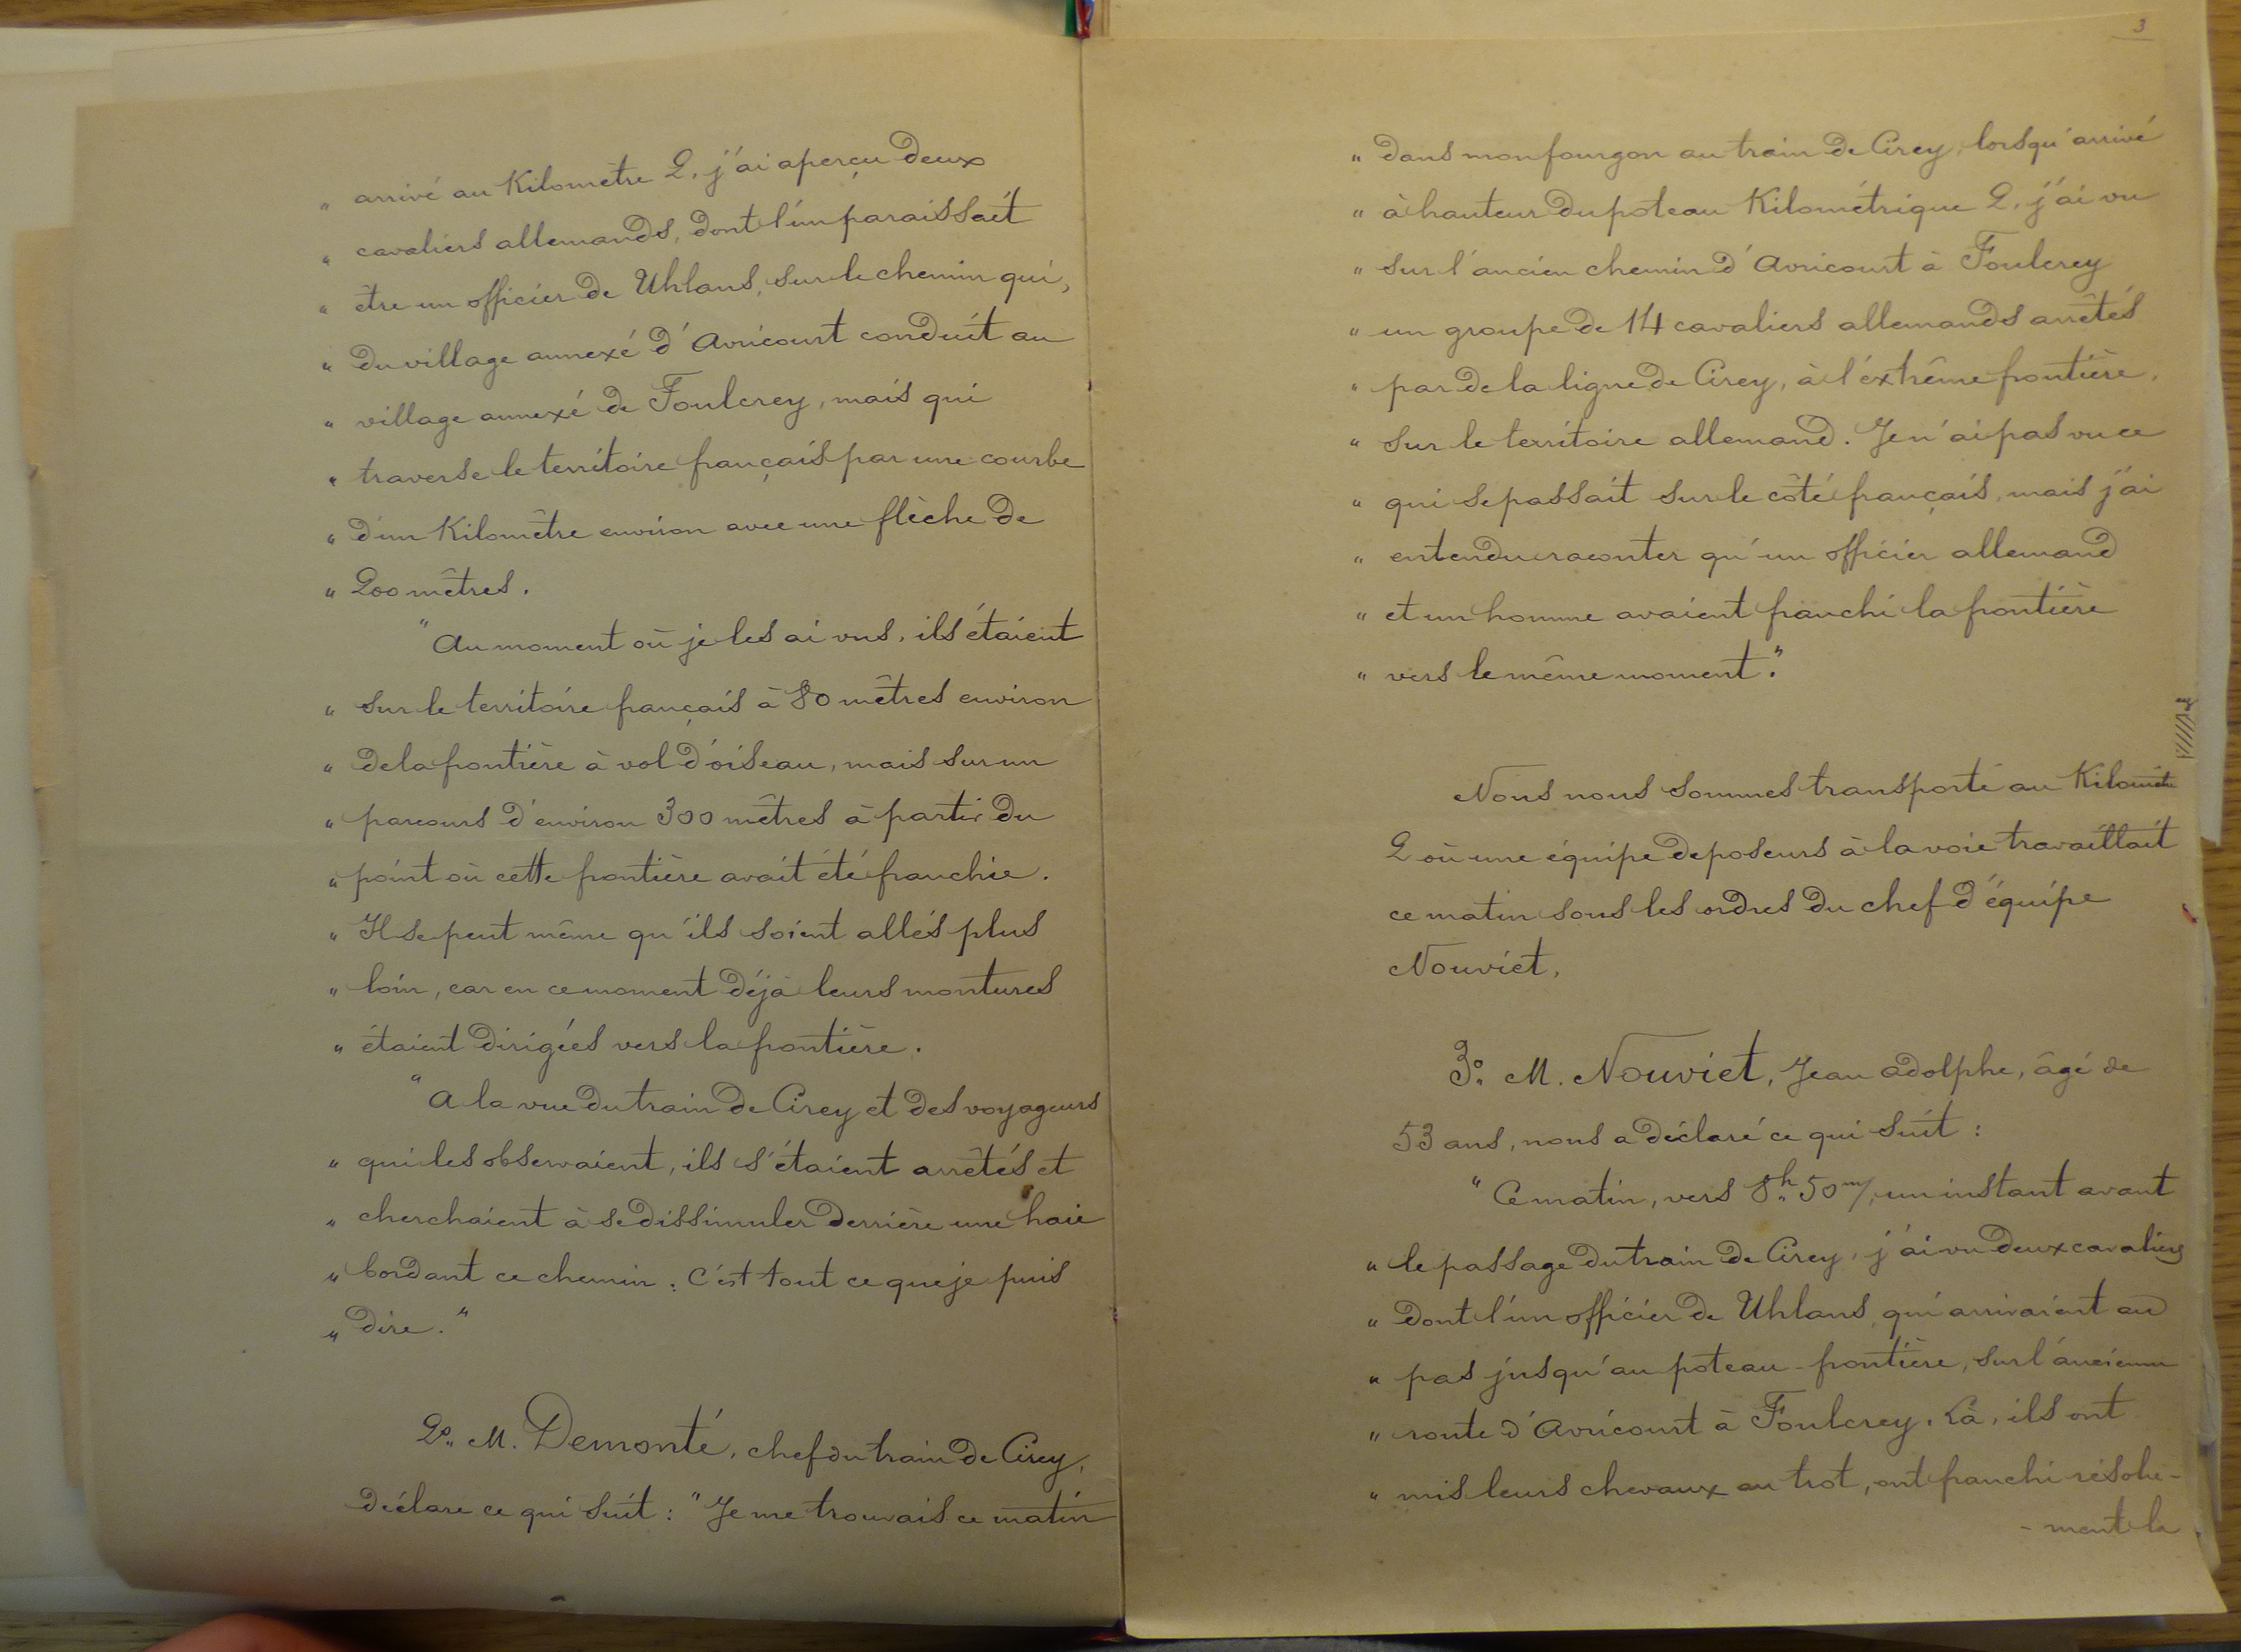 " arrivé au Kilomètre 2, j'ai aperçu deux
" cavaliers allemands, dont l'un paraissait
" être un officier de Uhlans, sur le chemin qui,
" du village annexé d'Avricourt conduit au
" village annexé de Foulcrey, mais qui
" traverse le territoire français par une courbe
" d'un Kilomètre environ avec une flèche de
" 200 mètres.
" Au moment où je les ai vus, ils étaient
" sur le territoire français à 80 mètres environ
" de la frontière à vol d'oiseau, mais sur un
" parcours d'environ 300 mètres à partir du
" point où cette frontière avait été franchie.
" Il se peut même qu'ils soient allés plus
" loin, car en ce moment déjà leurs montures
" étaient dirigées vers la frontière.
" A la vue du train de Cirey et des voyageurs
" qui les observaient, ils s'étaient arrêtés et
" cherchaient à se dissimuler derrière une haie
" bordant ce chemin : C'est tout ce que je puis
" dire. "
2o. M. Demonté, chef du train de Cirey,
déclare ce qui suit : " Je me trouvais ce matin
3
" dans mon fourgon au train de Cirey, lorsqu'arrivé
" à hauteur du poteau Kilométrique 2, j'ai vu
" sur l'ancien chemin d'Avricourt à Foulcrey
" un groupe de 14 cavaliers allemands arrêtés
" par de la ligne de Cirey, à l'extrême frontière,
" sur le territoire allemand. Je n'ai pas vu ce
" qui se passait sur le côté français, mais j'ai
" entendu raconter qu'un officier allemand
" et un homme avaient franchi la frontière
" vers le même moment. "
Nous nous sommes transporté au Kilomètre
2 où une équipe de poseurs à la voie travaillait
ce matin sous les ordres du chef d'équipe
Nouviet.
3o. M. Nouviet, Jean Adolphe, âgé de
53 ans, nous a déclaré ce qui suit :
" Ce matin, vers 8h 50m/, un instant avant
" le passage du train de Cirey, j'ai vu deux cavaliers
" dont l'un officier de Uhlans, qui arrivaient au
" pas jusqu'au poteau-frontière, sur l'ancienne
" route d'Avricourt à Foulcrey. Là, ils ont
" mis leurs chevaux au trot, ont franchi résolu-
- ment la